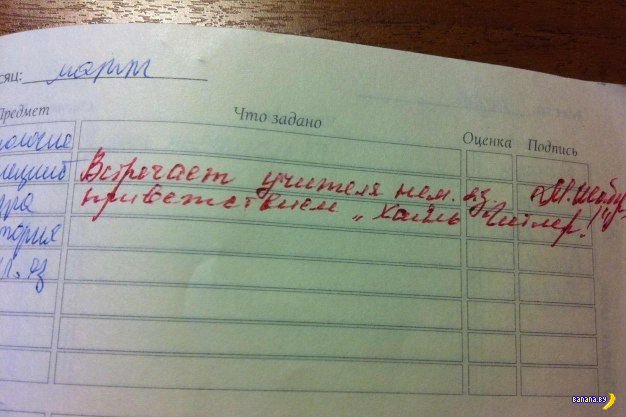 сяц: март
Предмет Что задано Оценка Подпись
Встречает учителя нем. яз.
приветствием „Хайль Гитлер!"
тория
banana.by